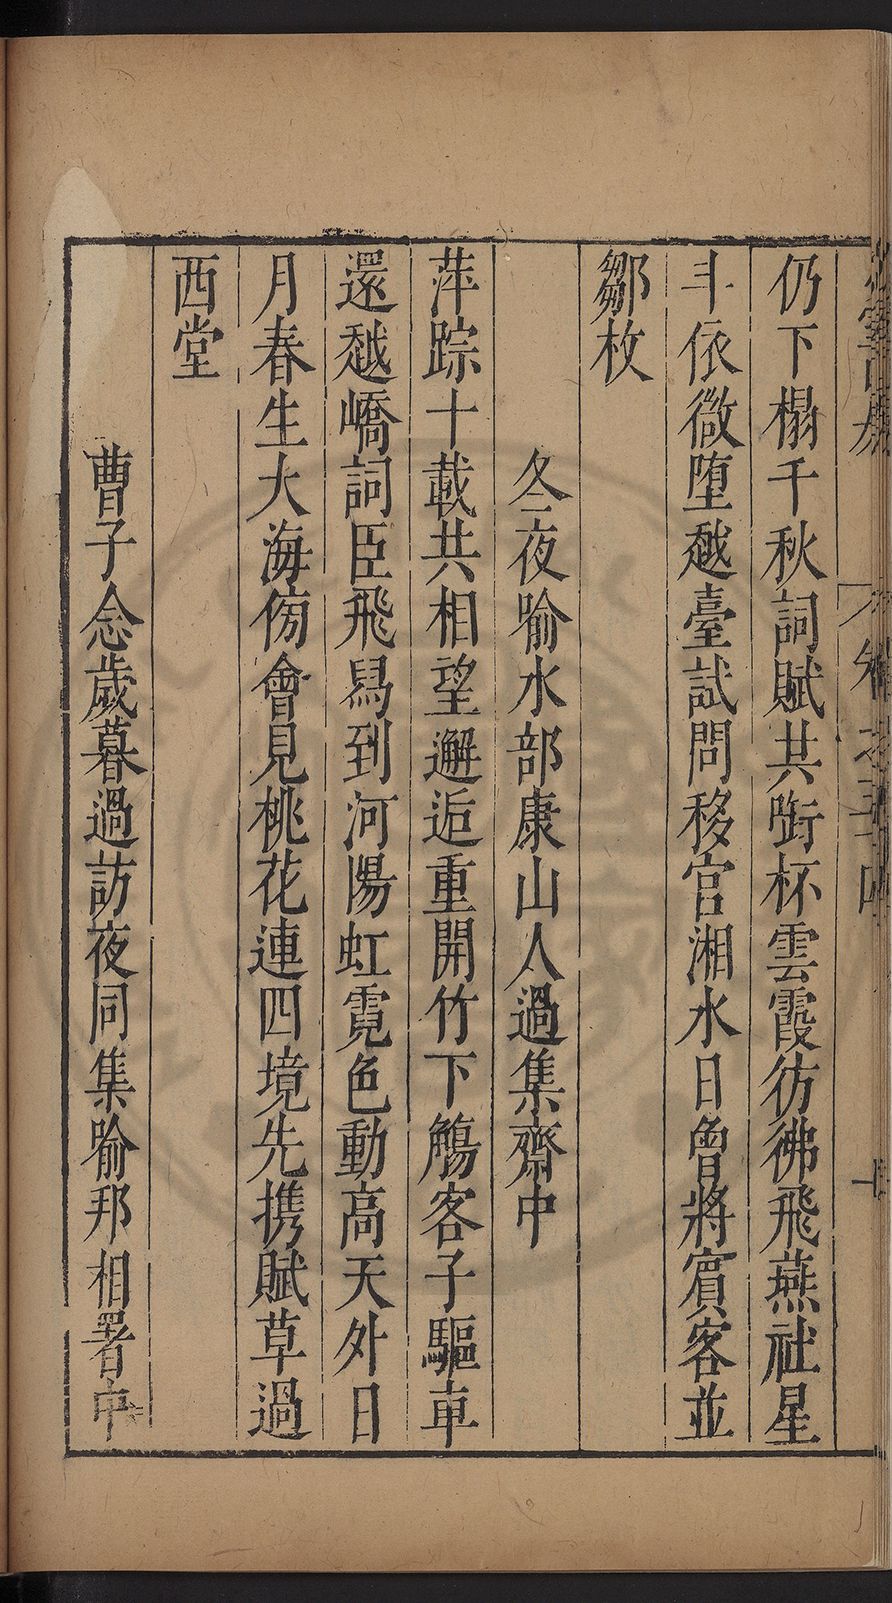 仍下榻千秋詞賦共銜杯雲霞彷彿飛燕社星
斗依微墮越臺試問移官湘水日曾將賓客並
鄒枚
冬夜喻水部康山人過集齋中
萍踪十載共相望邂逅重開竹下觴客子驅車
還越嶠詞臣飛舄到河陽虹霓色動高天外日
月春生大海傍會見桃花連四境先携賦草過
西堂
曹子念歲暮過訪夜同集喻邦相署中